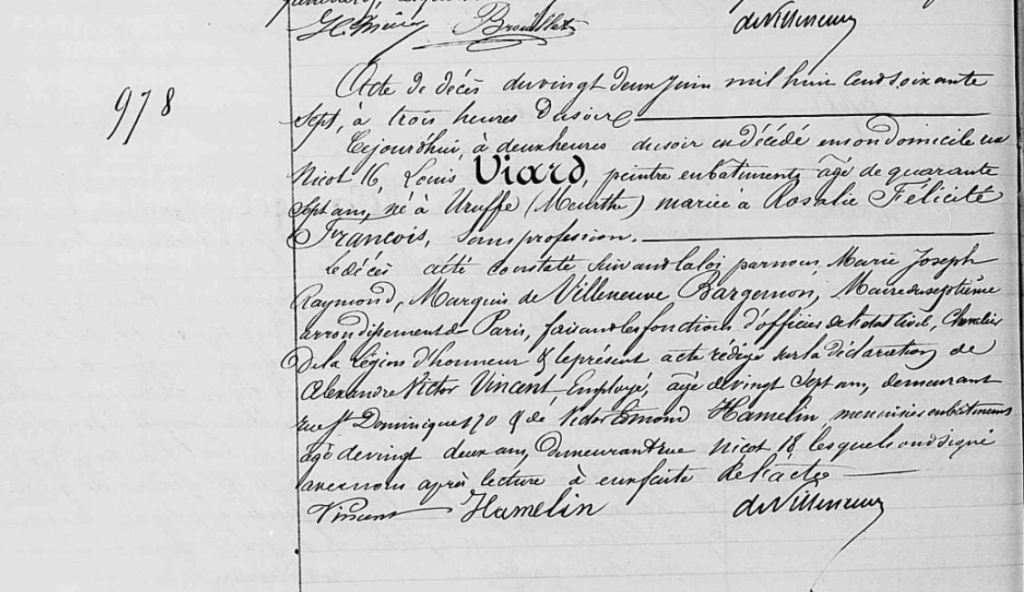 Brouillet de Villeneuve
978
Acte de décès du vingt deux Juin mil huit cent soixante
Sept, à trois heures du soir
Cejourd'hui, à deux heures du soir est décédé en son domicile rue
Nicot 16, Louis Viard, peintre en bâtiments âgé de quarante
Sept ans, né à Uruffe (Meurthe) marié à Rosalie Félicité
François, sans profession.
Le décès a été constaté suivant la loi par nous, Marie Joseph
Raymond, Marquis de Villeneuve Bargemon, Maire du septième
arrondissement de Paris, faisant les fonctions d'officier de l'état Civil, Chevalier
De la Légion d'honneur & le présent acte rédigé sur la déclaration de
Alexandre Victor Vincent, Employé, âgé de vingt Sept ans, demeurant
rue St Dominique 170 & de Victor Edmond Hamelin, menuisier en bâtiments
âgé de vingt deux ans, demeurant rue Nicot 18, lesquels ont signé
avec nous après lecture à eux faite De l'acte
Vincent Hamelin de Villeneuve